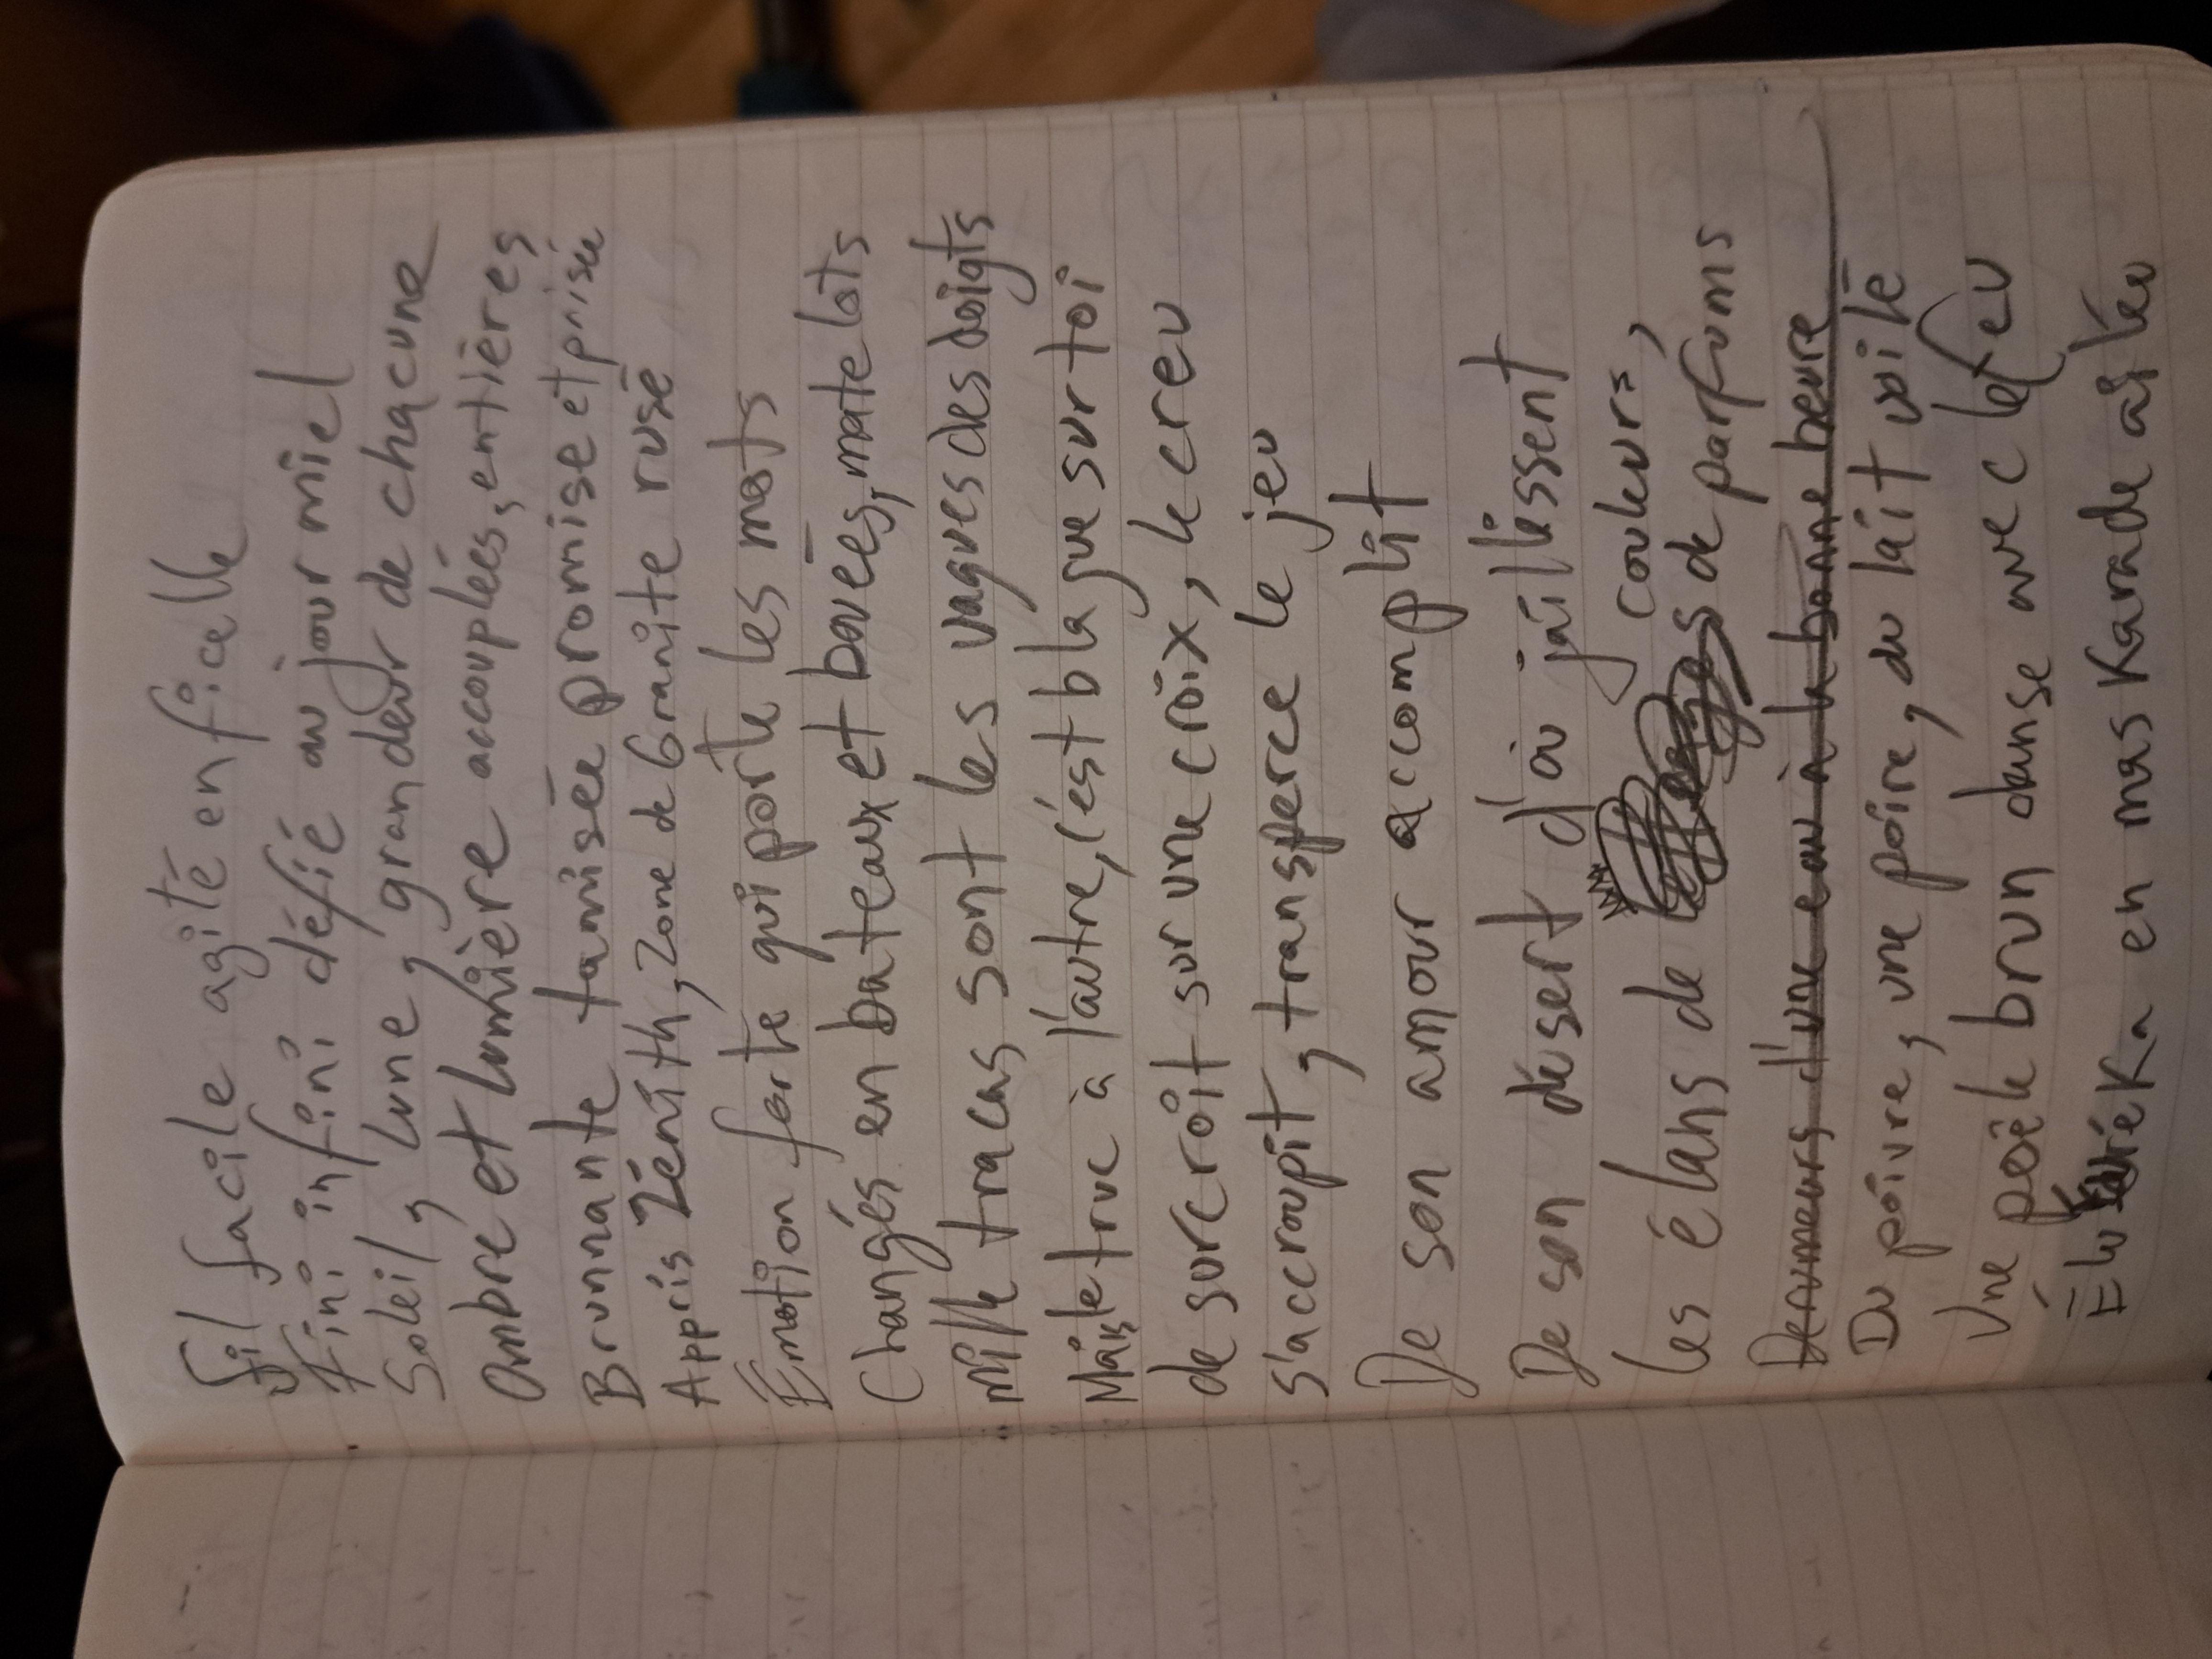 fil facile agité en ficelle
Fini infini défié au jour miel
Soleil, lune, grandeur de chacune
Ombre et lumière accouplées, entières
Brunnante tamisée promise et prisée
Appris Zénith, Zone de Granite rusé
Émotion forte qui porte les mots
Changés en bateaux et bouées, matelots
mille tracas sont les vagues des doigts
Mais le truc à l'autre, c'est blague sur toi
de surcroît sur une croix, le creu
s'accroupit, transperce le jeu
De son amour accomplit
De son désert d'où jaillissent
les élans de couleurs,
de parfums
Demeurs d'une eau à la bonne beure
Du poivre, une poire, du lait voilé
Une poêle brun danse avec le feu
en maskarade